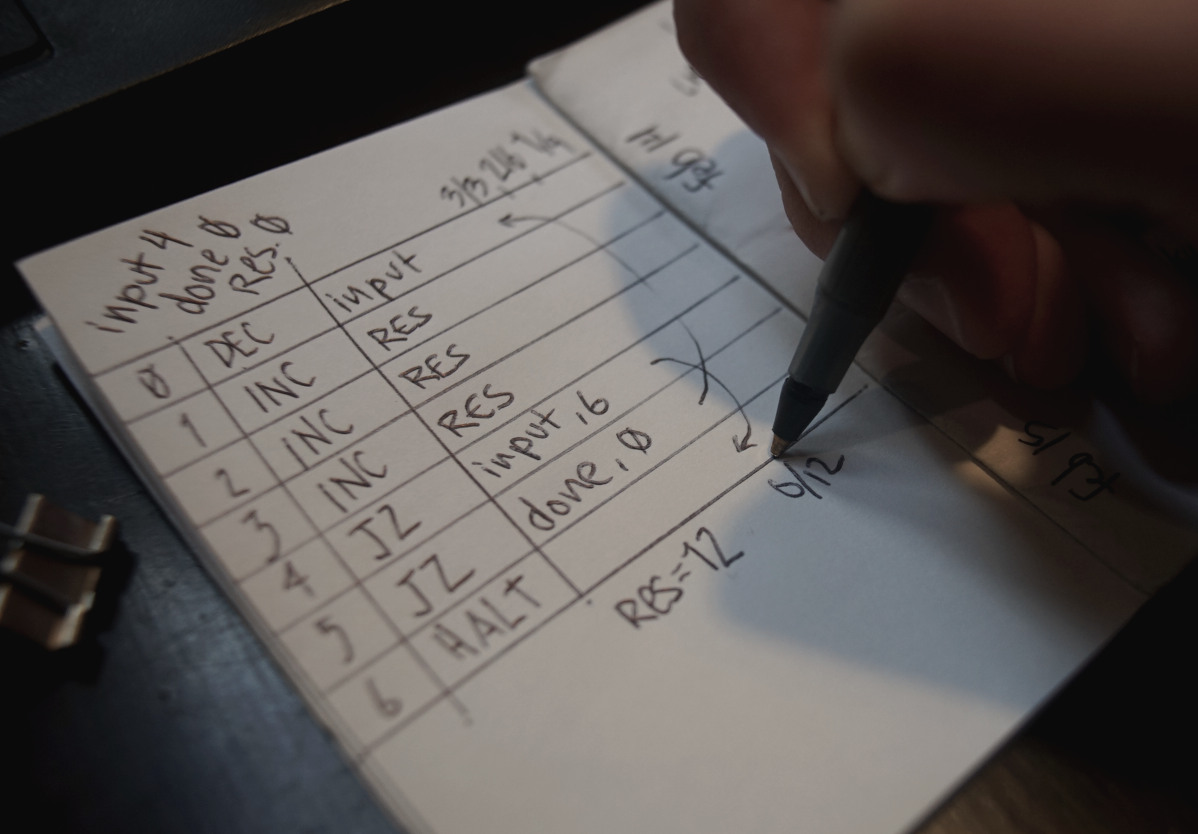 input 4
done 0
Res. 0
3/3 2/6 1/9
0 DEC input
1 INC RES
2 INC RES
3 INC RES
4 JZ input, 6
5 JZ done, 0
6 HALT
0/12
RES=12
Feb
Feb 15